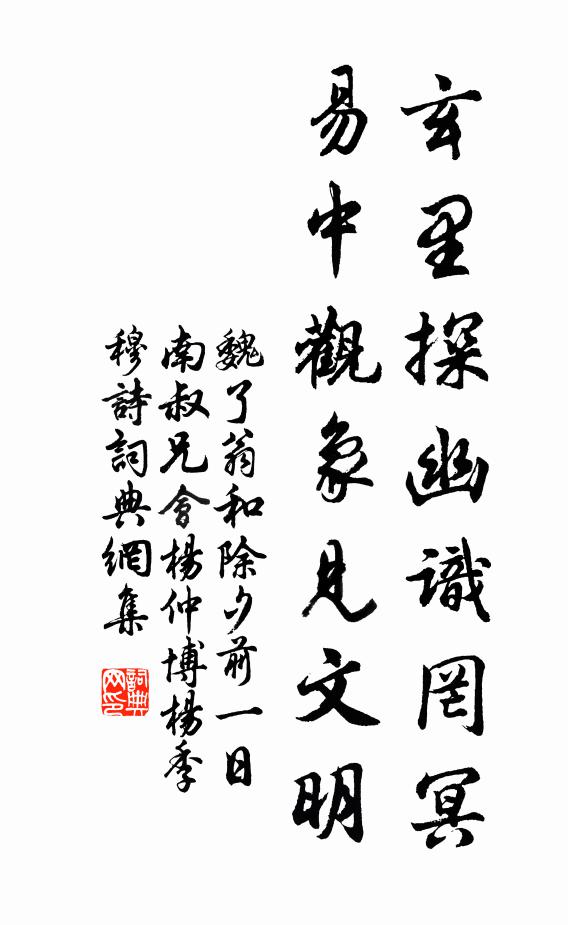 玄里探幽識罔冥
易中觀象見文明
魏了翁和除夕前一日
南叔兄會楊仲博楊季
穆詩詞典網集
詞典網印